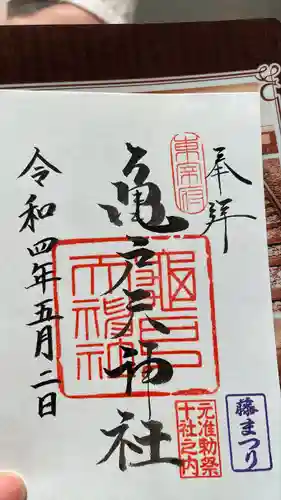 奉拝
東宰府
亀戸天神社
亀戸天神社
元准勅祭
十社之内
藤まつり
令和四年五月二日